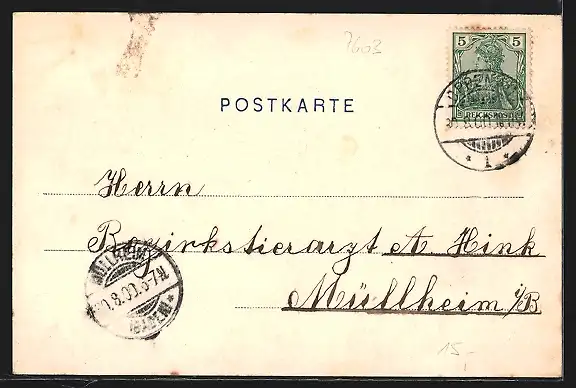 7603
5 5
REICHSPOST
POSTKARTE
* 1 *
Herrn
Bezirkstierarzt A. Hink
Müllheim i/B
MÜLLHEIM
8.00.6-7N.
(BADEN)
15.-